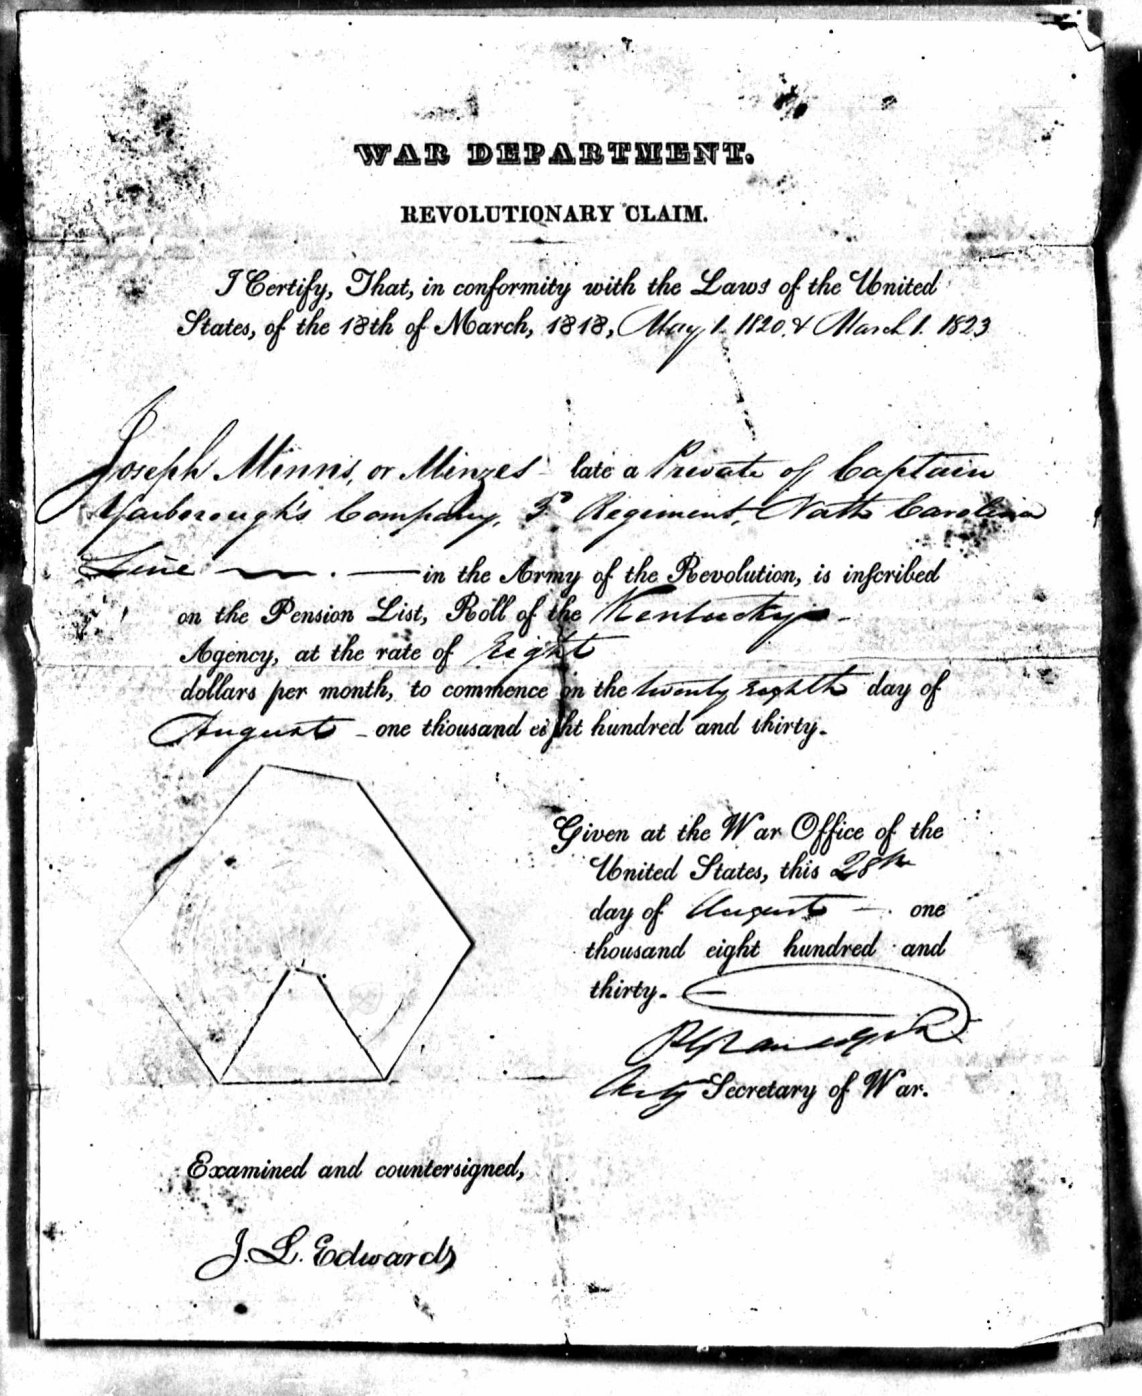 WAR DEPARTMENT.
REVOLUTIONARY CLAIM.
I Certify, That, in conformity with the Laws of the United
States, of the 18th of March, 1818, May 1. 1820. & March 1. 1823
Joseph Minnis, or Minzes late a Private of Captain
Yarborough's Company, Regiment, North Carolina
Line — . — in the Army of the Revolution, is inscribed
on the Pension List, Roll of the Kentucky -
Agency, at the rate of Eight
dollars per month, to commence on the twenty eighth day of
August - one thousand eight hundred and thirty.
Given at the War Office of the
United States, this 28th
day of August — one
thousand eight hundred and
thirty. —
P G Randolph
Actg Secretary of War.
Examined and countersigned,
J. L. Edwards